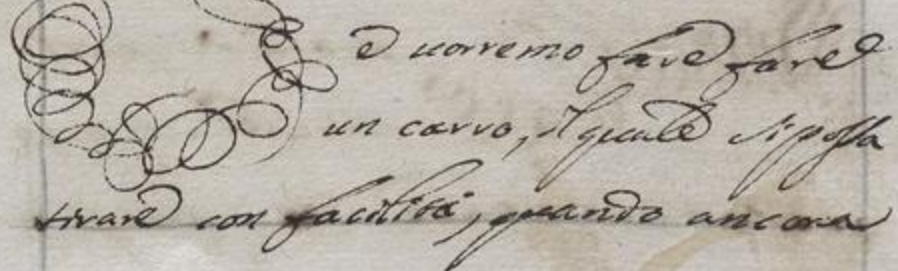 Se uorremo fare fare
un carro, il quale si possa
tirare con facilità, quando ancora